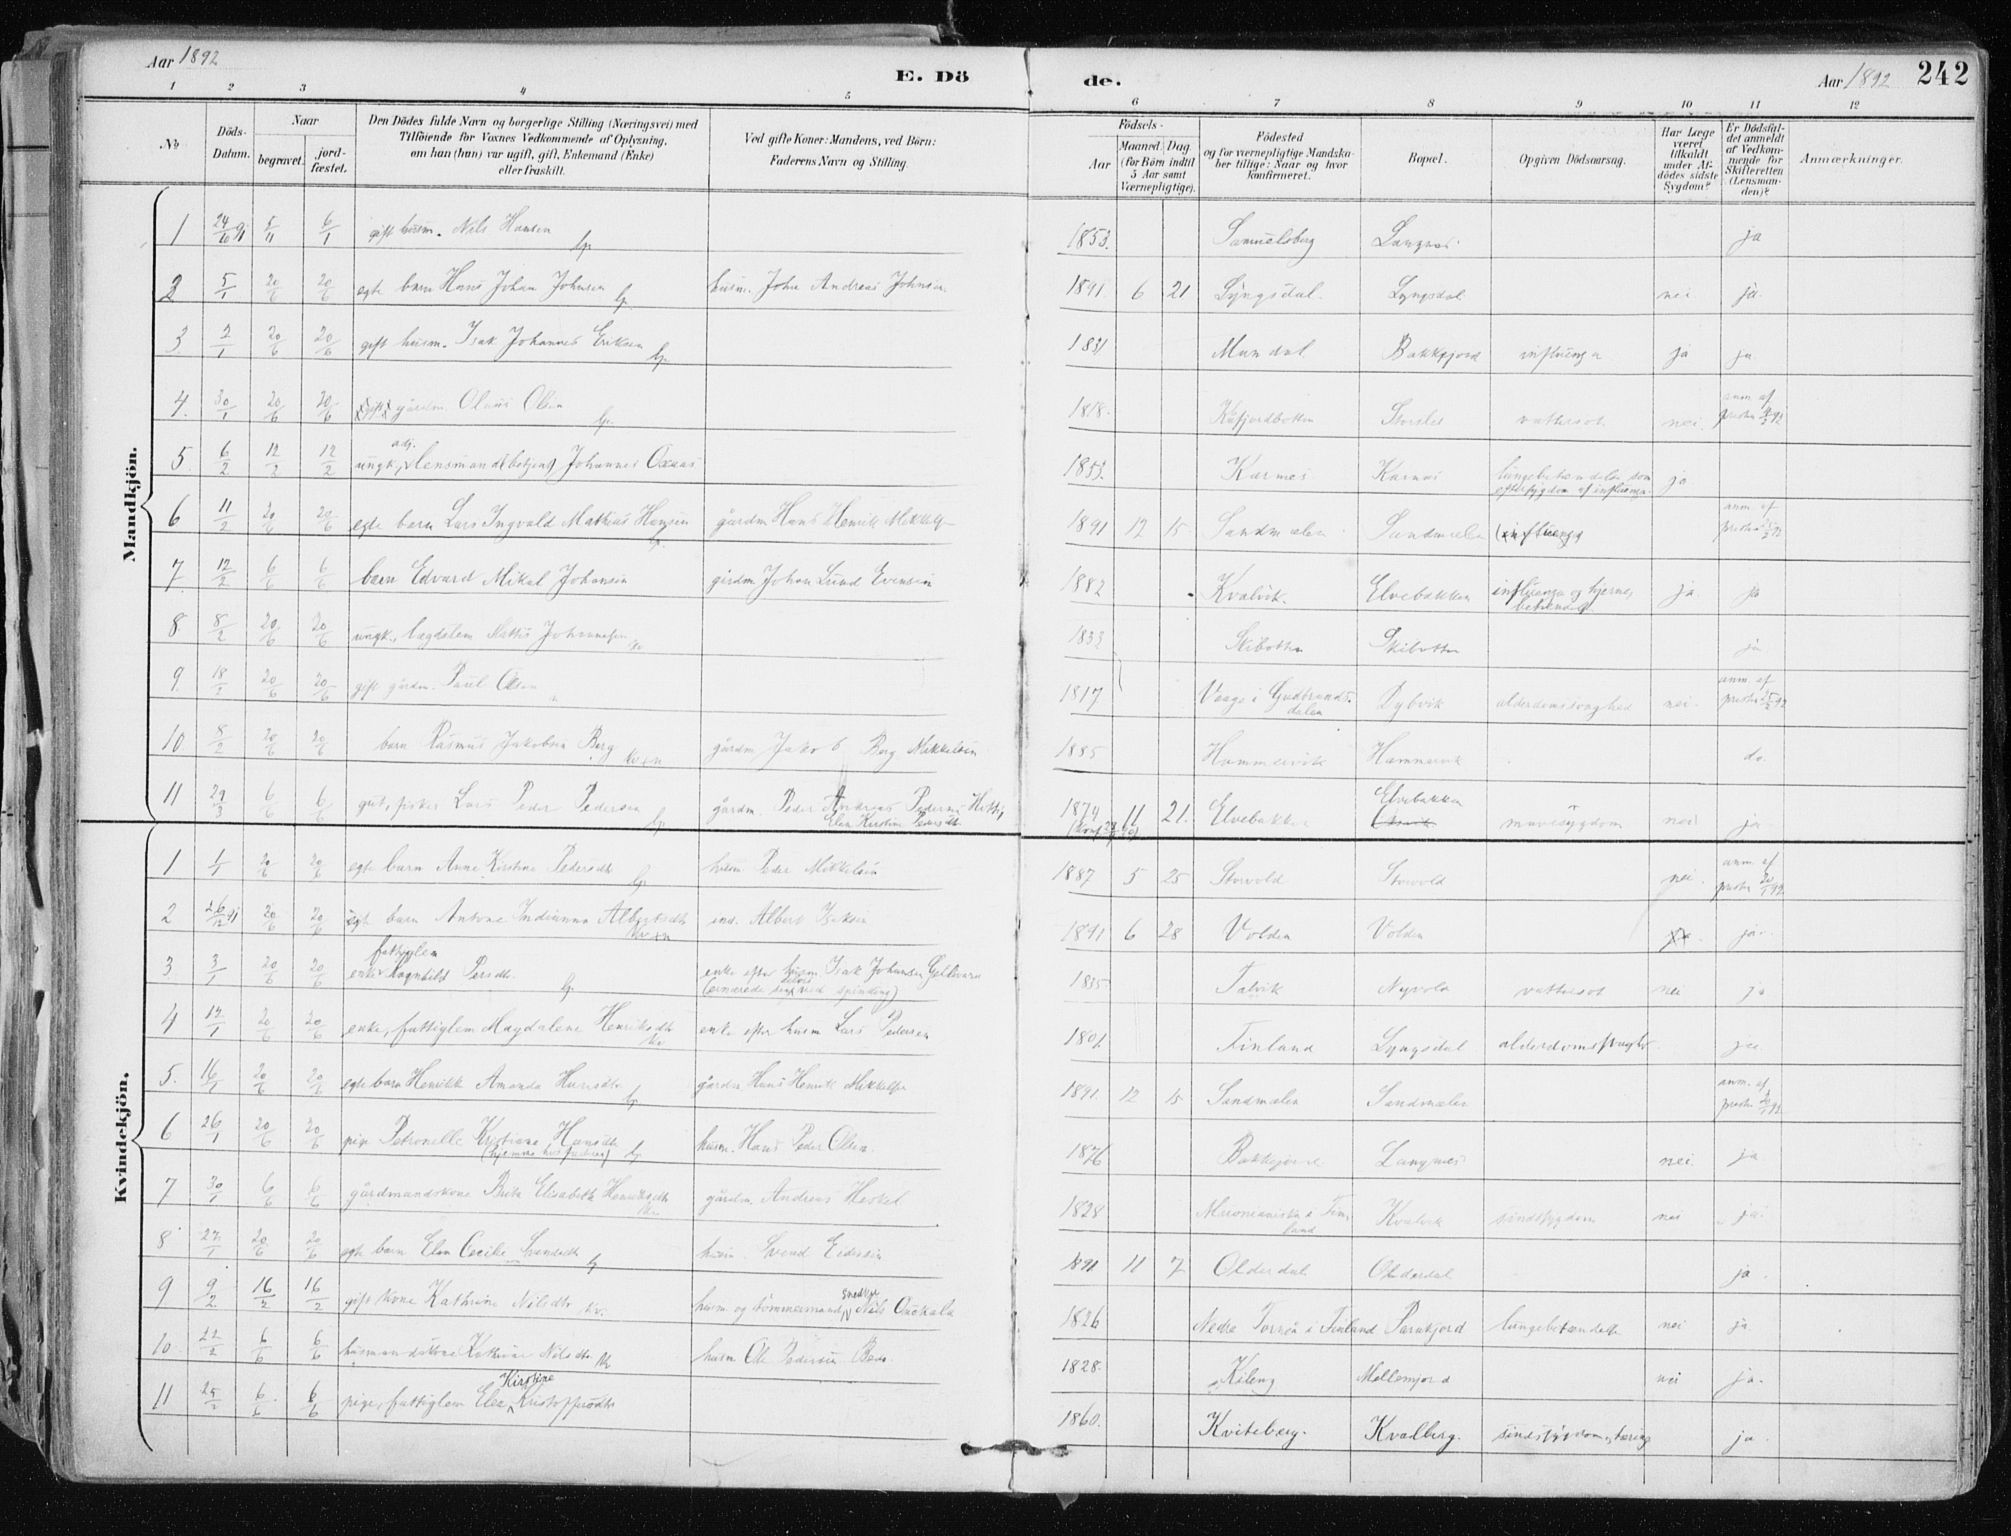 Aar 1892
E. Dö
de.
Aar 1892
242
1 2 3 4 5 6 7 8 9 10 11 12
No
Döds-Datum.
Naar
begravet.
jord-fæstet.
Den Dödes fulde Navn og borgerlige Stilling (Næringsvei) med
Tilföiende for Voxnes Vedkommende af Oplysning,
om han (hun) var ugift, gift, Enkemand (Enke)
eller fraskilt.
Ved gifte Koner: Mandens, ved Börn:
Faderens Navn og Stilling
Födsels-
Aar
Maaned. Dag.
(for Börn indtil
5 Aar samt
Værnepligtige).
Födested
og for værnepligtige Mandska-
ber tillige: Naar og hvor
konfirmeret.
Bopæl.
Opgiven Dödsaarsag.
Har Læge
været
tilkaldt
under Af-
dödes sidste
Sygdom?
Er Dödsfal-
det anmeldt
af Vedkom-
mende for
Skifteretten
(Lensman-
den)?
Anmærkninger.
Mandkjön.
1 24/10 91 5/11 6/1 gift husm. Nils Hansen lp. 1853. Samuelsberg Langnes ja
2 5/1 20/6 20/6 egte barn Hans Johan Johnsen lp. husm. John Andreas Johnsen 1891 6 21 Lyngsdal. Lyngsdal nei ja.
3. 2/1 20/6 20/6 gift husm. Isak Johannes Eriksen lp. 1831 Mandal Bakkejord influenza ja ja
4. 30/1 20/6 20/6 gårdm. Olaus Olsen lp. 1818. Kåfjordbotten Storslet vattersot nei. anm. af presten
5. 6/2 12/2 12/2 ungk., adj. lensmandsbetjent Johannes Oxaas 1853. Karnes Karnes lungebetændelse som eftersygdom af influenza. ja
6 11/2 20/6 20/6 egte barn Lars Ingvald Mathias Hansen lp. gårdm Hans Henrik Mikkels 1891 12 15 Sandmælen Sandmælen (influenza) anm. af presten
7. 12/2 6/6 6/6 barn Edvard Mikal Johansen gårdm Johan Lund Evensen 1882 Kvalvik. Elvebakken influenza og hjerne, betændelse ja. ja
8. 8/2 20/6 20/6 ungk., lægdslem Mattis Johannesen kv 1833 Skibotten Skibotten ja
9. 18/2 20/6 20/6 gift gårdm. Paul Olsen n 1817 Vaage i Gudbrands-dalen Dybvik alderdomssvaghed nei. anm. af presten
10 8/2 20/6 20/6 barn Rasmus Jakobsen Berg gårdm Jakob Berg Mikkelsen 1885 Hammervik Hammervik do.
11 29/3 6/6 6/6 gut, fisker Lars Peder Pedersen lp gårdm. Peder Andreas Pedersen Elen Kirstine Pedersdt. 1874 11 21. Elvebakken Elvebakken mavesygdom nei ja.
Kvindekjön.
1 1/1 20/6 20/6 egte barn Anne Kirstine Pedersdt lp husm Peder Mikkelsen 1887 5 25 Storvold Storvold nei. anm. af presten
2 26/12 91 20/6 20/6 egte barn Antone Indianna Albertsdt Albert Isaksen 1891 6 28 Volden Volden ja.
3. 3/1 20/6 20/6 enke fattiglem Ragnhild Persdt. lp. enke efter husm. Isak Johansen Gellivara (ernærede sig delvis ved spinding) 1835 Talvik Nyvold vattersot nei ja
4 12/1 20/6 20/6 enke, fattiglem Magdalene Henriksdt kv enke efter husm Lars Pedersen 1801. Finland Lyngsdal alderdomssvaghed. ja.
5. 16/1 20/6 20/6 egte barn Henrikke Amanda Hansdt lp gårdm Hans Henrik Mikkelsen 1891. 12 15 Sandmælen Sandmælen anm. af presten
6 26/1 20/6 20/6 pige Petronelle Kristiane Hansdt (hjemme hos fadren) lp husm. Hans Peder Olsen. 1876 Bakkejord Langnes nei ja
7 30/1 6/6 6/6 gårdmandskone Brita Elisabeth Henriksdt kv gårdm. Andreas Heskel 1828 Muonioniska i Finland Kvalvik sindssygdom nei ja.
8. 27/1 20/6 20/6 egte barn Elen Cecilie Svendsdt lp husm. Svend Pedersen 1891 11 7. Olderdal Olderdal ja.
9 9/2 16/2 16/2 gift kone Kathrine Nilsdt kv. husm. og tömmermand snedker Nils 1826 Nedre Torneå i Finland Parakjord lungebetændelse nei ja
10. 22/2 6/6 6/6 husmandskone Kathrine Nilsdt. kv husm. Ole Pedersen 1828. Kileng Mellemjord nei ja.
11 25/2 6/6 6/6 pige, fattiglem Elen Kirstine Kristoffersdt 1860. Kviteberg. Kvalberg. sindssygdom, tæring ja.